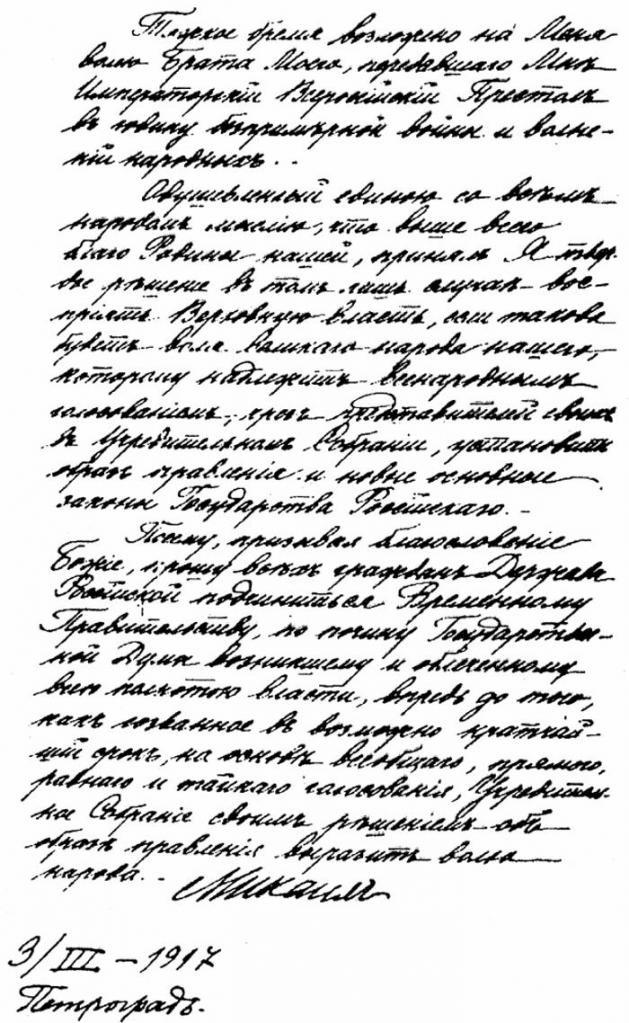 Тяжкое бремя возложено на Меня
волею Брата Моего, передавшаго Мнѣ
Императорскій Всероссійскій Престолъ
въ годину безпримѣрной войны и волне-
ній народныхъ.
Одушевленный единою со всѣмъ
народомъ мыслію, что выше всего
благо Родины нашей, принялъ Я твер-
дое рѣшеніе въ томъ лишь случаѣ вос-
пріять Верховную власть, если такова
будетъ воля великаго народа нашего,
которому надлежитъ всенароднымъ
голосованіемъ, чрезъ представителей своихъ
въ Учредительномъ Собраніи, установить
образъ правленія и новые основные
законы Государства Россійскаго.
Посему, призывая благословеніе
Божіе, прошу всѣхъ гражданъ Державы
Россійской подчиниться Временному
Правительству, по почину Государствен-
ной Думы возникшему и облеченному
всею полнотою власти, впредь до того,
какъ созванное въ возможно кратчай-
шій срокъ, на основѣ всеобщаго, прямого,
равнаго и тайнаго голосованія, Учредитель-
ное Собраніе своимъ рѣшеніемъ объ
образѣ правленія выразитъ волю
народа.
Михаилъ
3/III – 1917
Петроградъ.